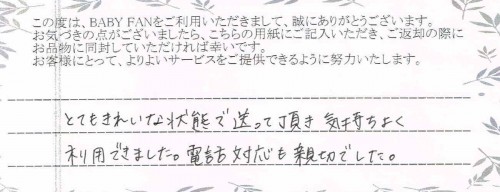 この度は、BABY FANをご利用いただきまして、誠にありがとうございます。
お気づきの点がございましたら、こちらの用紙にご記入いただき、ご返却の際に
お品物に同封していただければ幸いです。
お客様にとって、よりよいサービスをご提供できるように努力いたします。
とてもきれいな状態で送って頂き 気持ちよく
利用できました。電話対応も親切でした。